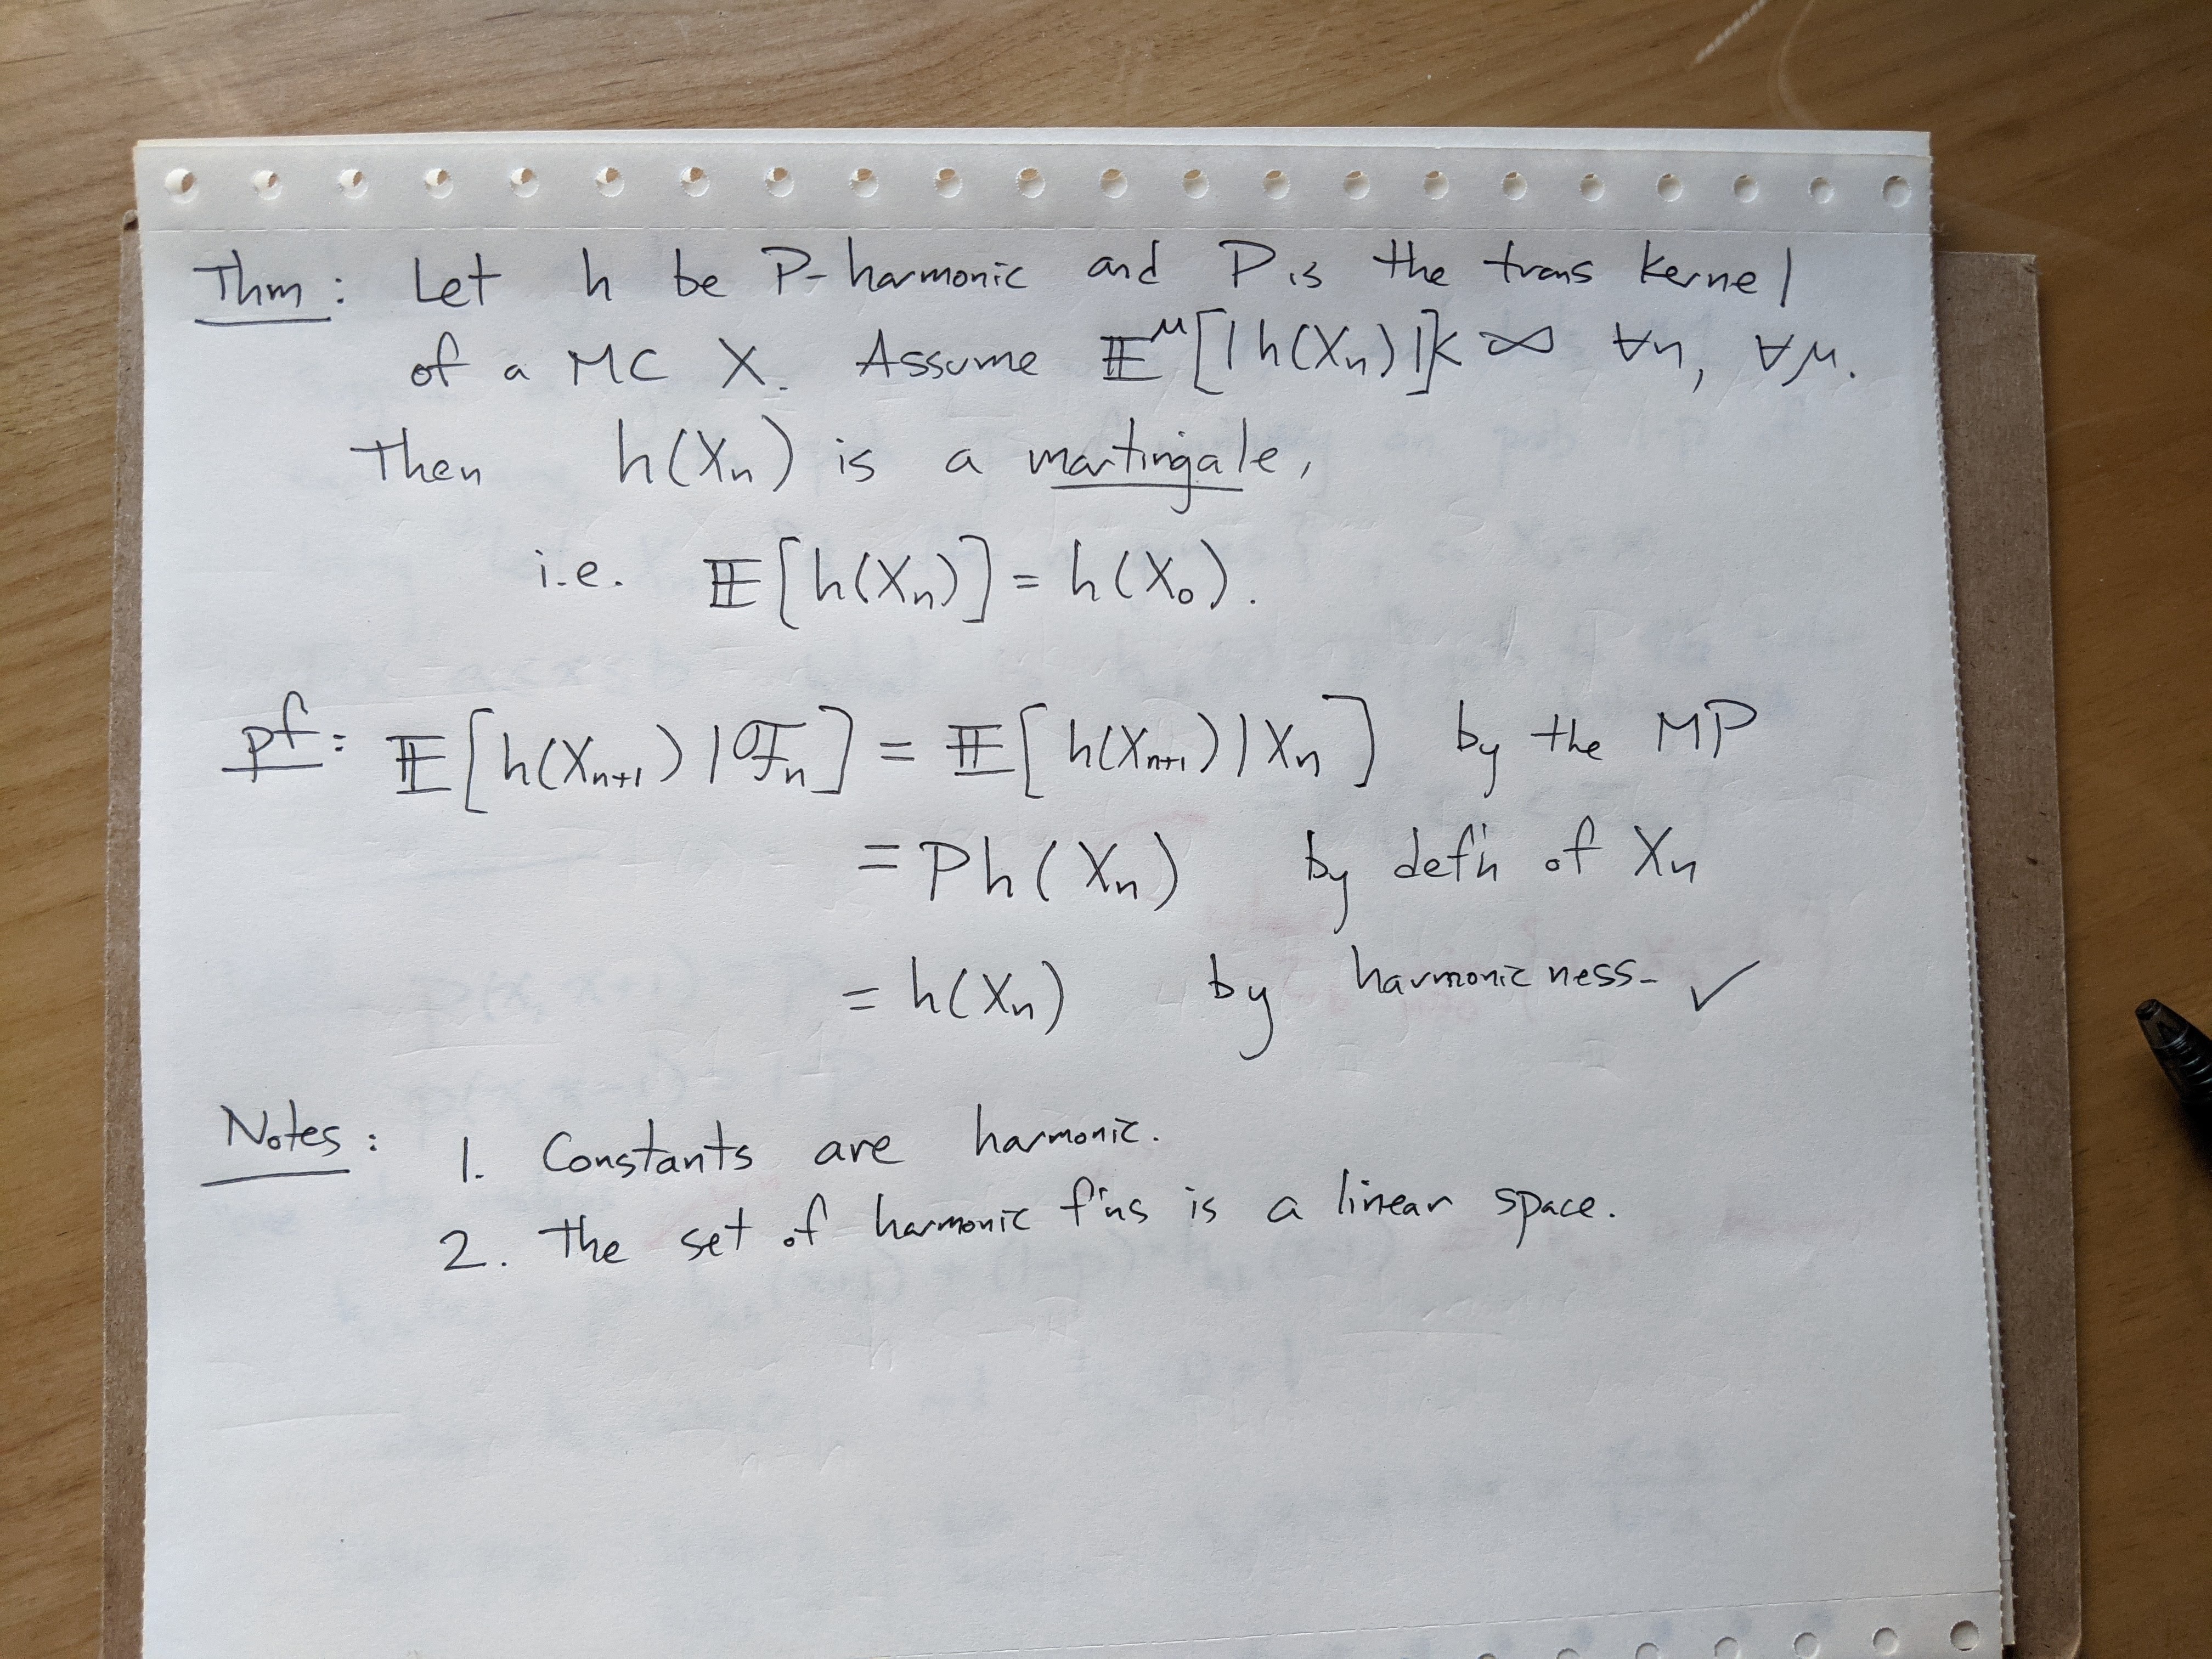 Thm: Let h be P-harmonic and P is the trans kernel
of a MC X. Assume 𝔼^μ[|h(Xₙ)|]<∞ ∀n, ∀μ.
Then h(Xₙ) is a martingale,
i.e. 𝔼[h(Xₙ)] = h(X₀).
pf: 𝔼[h(Xₙ₊₁)|ℱₙ] = 𝔼[h(Xₙ₊₁)|Xₙ] by the MP
= Ph(Xₙ) by def'n of Xₙ
= h(Xₙ) by harmonicness. ✓
Notes: 1. Constants are harmonic.
2. The set of harmonic f'ns is a linear space.